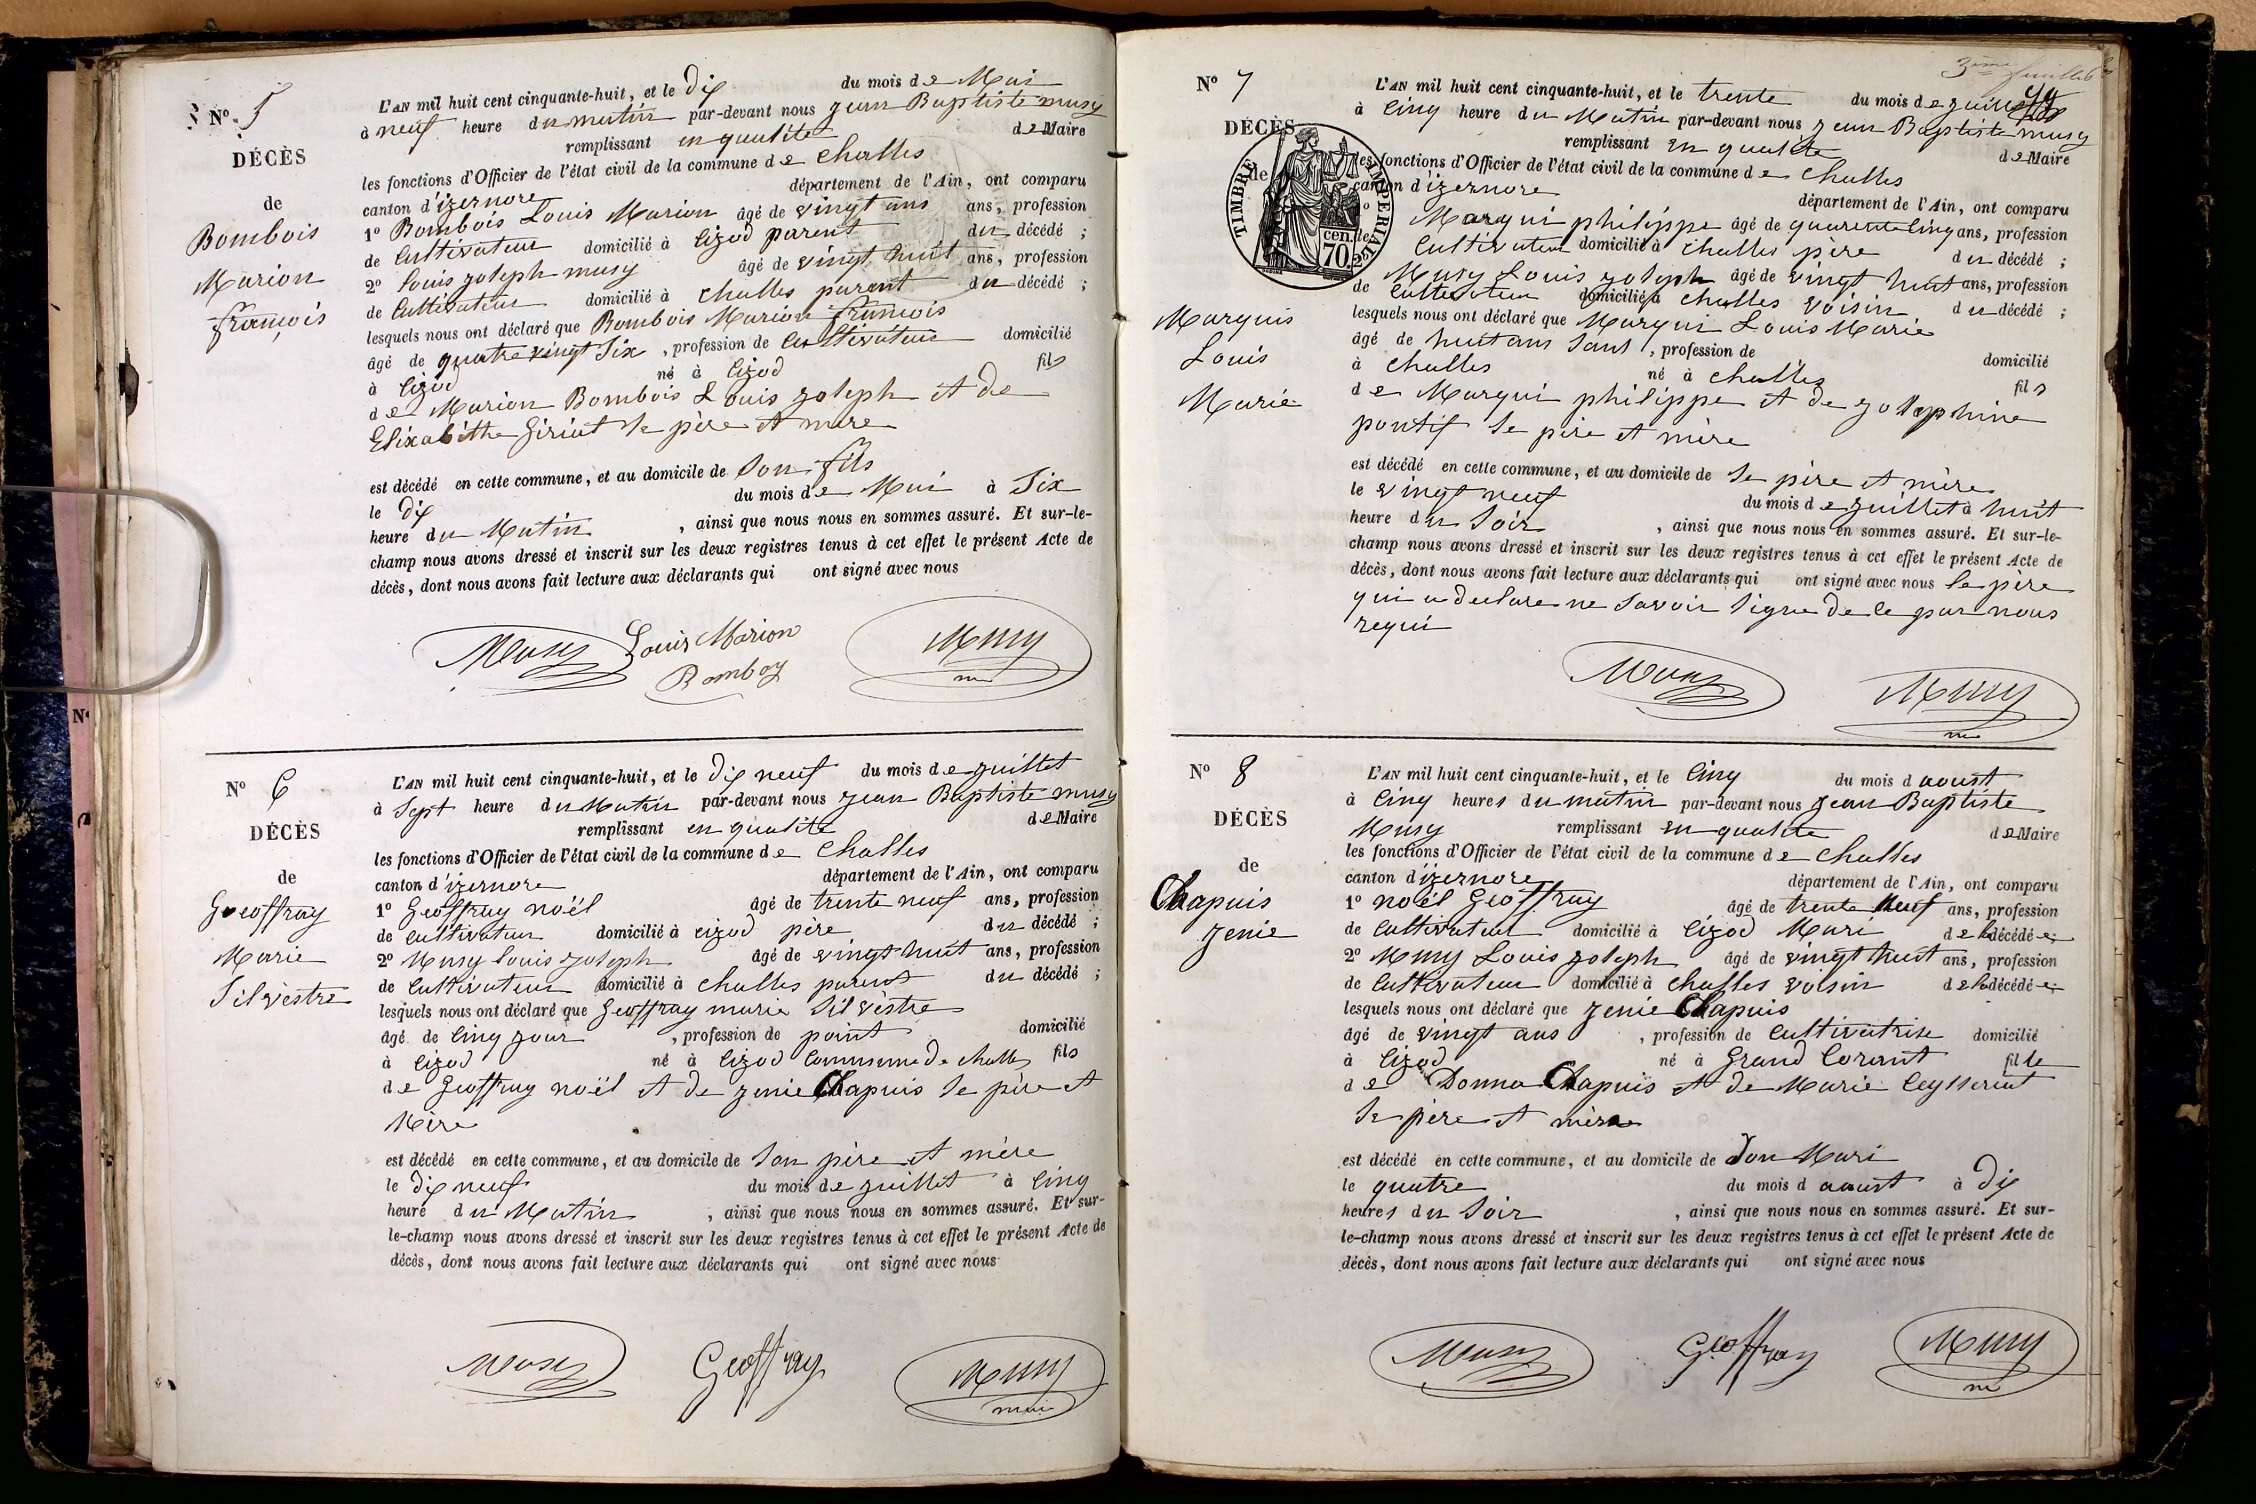 N° 5
DÉCÈS
de
Bombois
Marion
françois
L'AN mil huit cent cinquante-huit, et le dix du mois de Mai
à neuf heure du matin par-devant nous jean Baptiste musy
remplissant en qualite de Maire
les fonctions d'Officier de l'état civil de la commune de Challes
canton d'izernore département de l'Ain, ont comparu
1° Bombois Louis Marion âgé de vingt ans ans, profession
de Cultivateur domicilié à Cizod parent du décédé ;
2° Louis joseph musy âgé de vingt huit ans, profession
de Cultivateur domicilié à Challes parent du décédé ;
lesquels nous ont déclaré que Bombois Marion françois
âgé de quatre vingt Six, profession de Cultivateur domicilié
à Cizod né à Cizod fils
de Marion Bombois Louis joseph et de
Elixabithe Giriat Se père et mere
est décédé en cette commune, et au domicile de Son fils
le dix du mois de Mai à Six
heure du Matin, ainsi que nous nous en sommes assuré. Et sur-le-
champ nous avons dressé et inscrit sur les deux registres tenus à cet effet le présent Acte de
décès, dont nous avons fait lecture aux déclarants qui ont signé avec nous
Musy Louis Marion Musy
Bomboy m
N° 6
DÉCÈS
de
Geoffray
Marie
Silvèstre
L'AN mil huit cent cinquante-huit, et le dix neuf du mois de juillet
à Sept heure du Matin par-devant nous jean Baptiste musy
remplissant en qualite de Maire
les fonctions d'Officier de l'état civil de la commune de Challes
canton d'izernore département de l'Ain, ont comparu
1° Geoffray noël âgé de trente neuf ans, profession
de Cultivateur domicilié à cizod père du décédé ;
2° Musy Louis joseph âgé de vingt huit ans, profession
de Cultivateur domicilié à Challes parent du décédé ;
lesquels nous ont déclaré que Geoffray marie Silvèstre
âgé de Cinq jour, profession de point domicilié
à Cizod né à Cizod Commune de Challes fils
de Geoffray noël et de jenie Chapuis Se père et
Mère
est décédé en cette commune, et au domicile de Son père et mère
le dix neuf du mois de juillet à Cinq
heure du Matin, ainsi que nous nous en sommes assuré. Et sur-
le-champ nous avons dressé et inscrit sur les deux registres tenus à cet effet le présent Acte de
décès, dont nous avons fait lecture aux déclarants qui ont signé avec nous
Musy Geoffray Musy
maire
3eme feuillet
N° 7
DÉCÈS
de
TIMBRE IMPERIAL
70 cen.
Marquis
Louis
Marie
L'AN mil huit cent cinquante-huit, et le trente du mois de juillet
à Cinq heure du Matin par-devant nous jean Baptiste musy
remplissant en qualite de Maire
les fonctions d'Officier de l'état civil de la commune de Challes
canton d'izernore département de l'Ain, ont comparu
Marqui philippe âgé de quarente Cinq ans, profession
Cultivateur domicilié à Challes père du décédé ;
Musy Louis joseph âgé de vingt huit ans, profession
de Cultivateur domicilié à Challes voisin du décédé ;
lesquels nous ont déclaré que Marqui Louis Marie
âgé de huit ans Sans, profession de domicilié
à Challes né à Challes fils
de Marqui philippe et de josephine
pontif Se père et mère
est décédé en cette commune, et au domicile de Se père et mère
le vingt neuf du mois de juillet à huit
heure du Soir, ainsi que nous nous en sommes assuré. Et sur-le-
champ nous avons dressé et inscrit sur les deux registres tenus à cet effet le présent Acte de
décès, dont nous avons fait lecture aux déclarants qui ont signé avec nous Le père
qui a declare ne Savoir Signe de Ce par nous
requi
Musy Musy
m
N° 8
DÉCÈS
de
Chapuis
jenie
L'AN mil huit cent cinquante-huit, et le Cinq du mois d aoust
à Cinq heures du matin par-devant nous jean Baptiste
Musy remplissant en qualite de Maire
les fonctions d'Officier de l'état civil de la commune de Challes
canton d'izernore département de l'Ain, ont comparu
1° noël Geoffray âgé de trente Neuf ans, profession
de Cultivateur domicilié à Cizod Mari de la décédée;
2° Musy Louis joseph âgé de vingt huit ans, profession
de Cultivateur domicilié à Challes voisin de la décédée;
lesquels nous ont déclaré que jenie Chapuis
âgé de vingt ans, profession de Cultivatrise domicilié
à Cizod né à Grand Corent fille
de Donna Chapuis et de Marie Ceysseriat
Se père et mère
est décédé en cette commune, et au domicile de Son Mari
le quatre du mois d aoust à dix
heures du Soir, ainsi que nous nous en sommes assuré. Et sur-
le-champ nous avons dressé et inscrit sur les deux registres tenus à cet effet le présent Acte de
décès, dont nous avons fait lecture aux déclarants qui ont signé avec nous
Musy Geoffray Musy
m